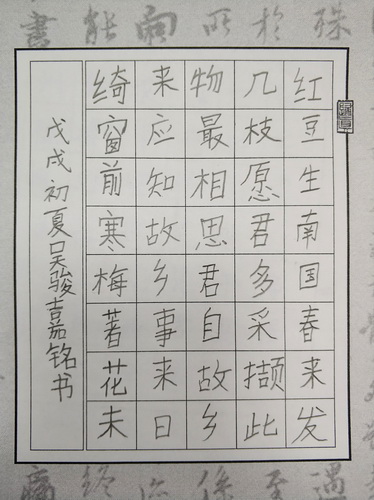 红豆生南国春来发
几枝愿君多采撷此
物最相思君自故乡
来应知故乡事来日
绮窗前寒梅著花未
戊戌初夏吴骏嘉铭书